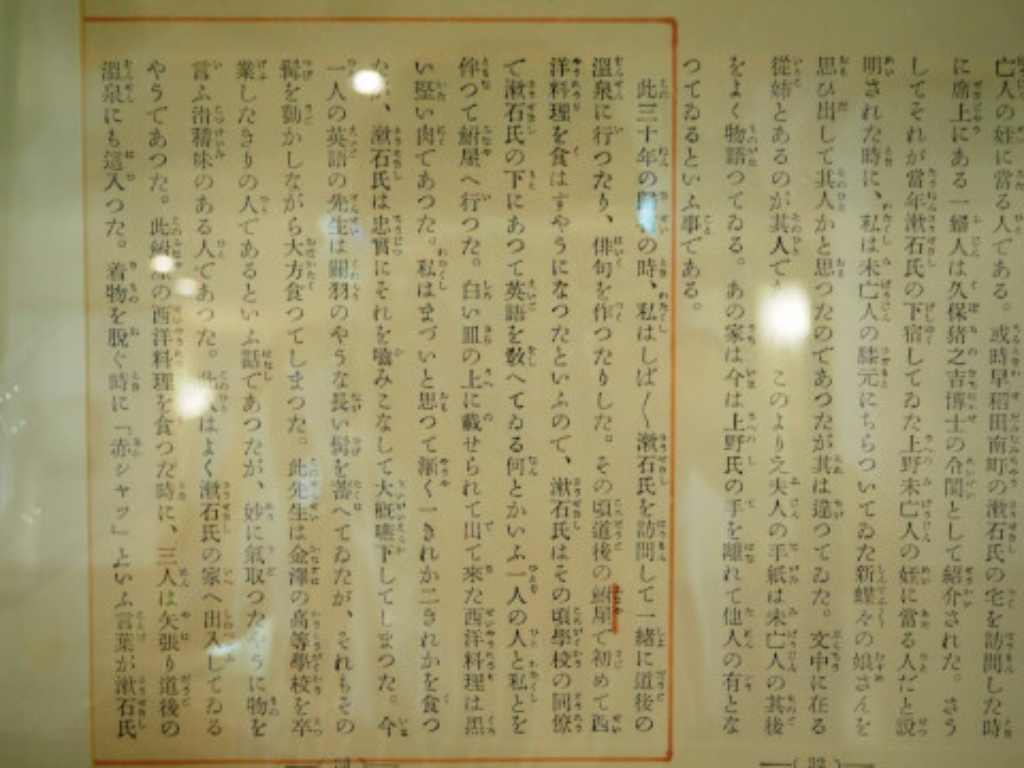 亡人の姪に當る人である。或時早稻田南町の漱石氏の宅を訪問した時
に席上にある一婦人は久保猪之吉博士の令閨として紹介された。さう
してそれが當年漱石氏の下宿してゐた上野未亡人の姪に當る人だと說
明された時に、私は未亡人の膝元にちらついてゐた新蝶々の娘さんを
思ひ出して其人かと思つたのであつたが其は違つてゐた。文中に在る
從姉とあるのが其人で このよりえ夫人の手紙は未亡人の其後
をよく物語つてゐる。あの家は今は上野氏の手を離れて他人の有とな
つてゐるといふ事である。
此三十年の の時、私はしば〳〵漱石氏を訪問して一緖に道後の
溫泉に行つたり、俳句を作つたりした。その頃道後の鮒屋で初めて西
洋料理を食はすやうになつたといふので、漱石氏はその頃學校の同僚
で漱石氏の下にあつて英語を敎へてゐる何とかいふ一人の人と私とを
伴つて鮒屋へ行つた。白い皿の上に載せられて出て來た西洋料理は黑
い堅い肉であつた。私はまづいと思つて漸く一きれか二きれかを食つ
漱石氏は忠實にそれを嚙みこなして大槪嚥下してしまつた。今
一人の英語の先生は關羽のやうな長い髯を蓄へてゐたが、それもその
髯を動かしながら大方食つてしまつた。此先生は金澤の高等學校を卒
業したきりの人であるといふ話であつたが、妙に氣取つたやうに物を
言ふ滑稽味のある人であつた。 はよく漱石氏の家へ出入してゐる
やうであつた。此鮒屋の西洋料理を食つた時に、三人は矢張り道後の
溫泉にも這入つた。着物を脫ぐ時に「赤シャツ」といふ言葉が漱石氏